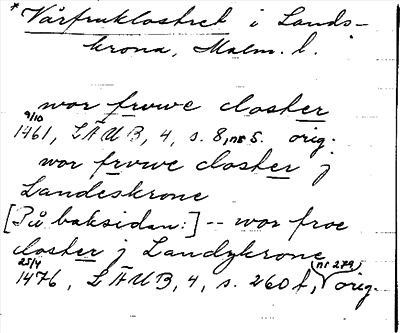 * Vårfruklostret i Lands-
krona, Malm. l.
wor frwwe closter
9/10 1461, LÄUB, 4, s. 8, nr 5. orig.
wor frwwe closter j
Landeskrone
[På baksidan:] -- wor froe
closter j Landzkrone
25/4 1476, LÄUB, 4, s. 260 f, (nr 279) orig.